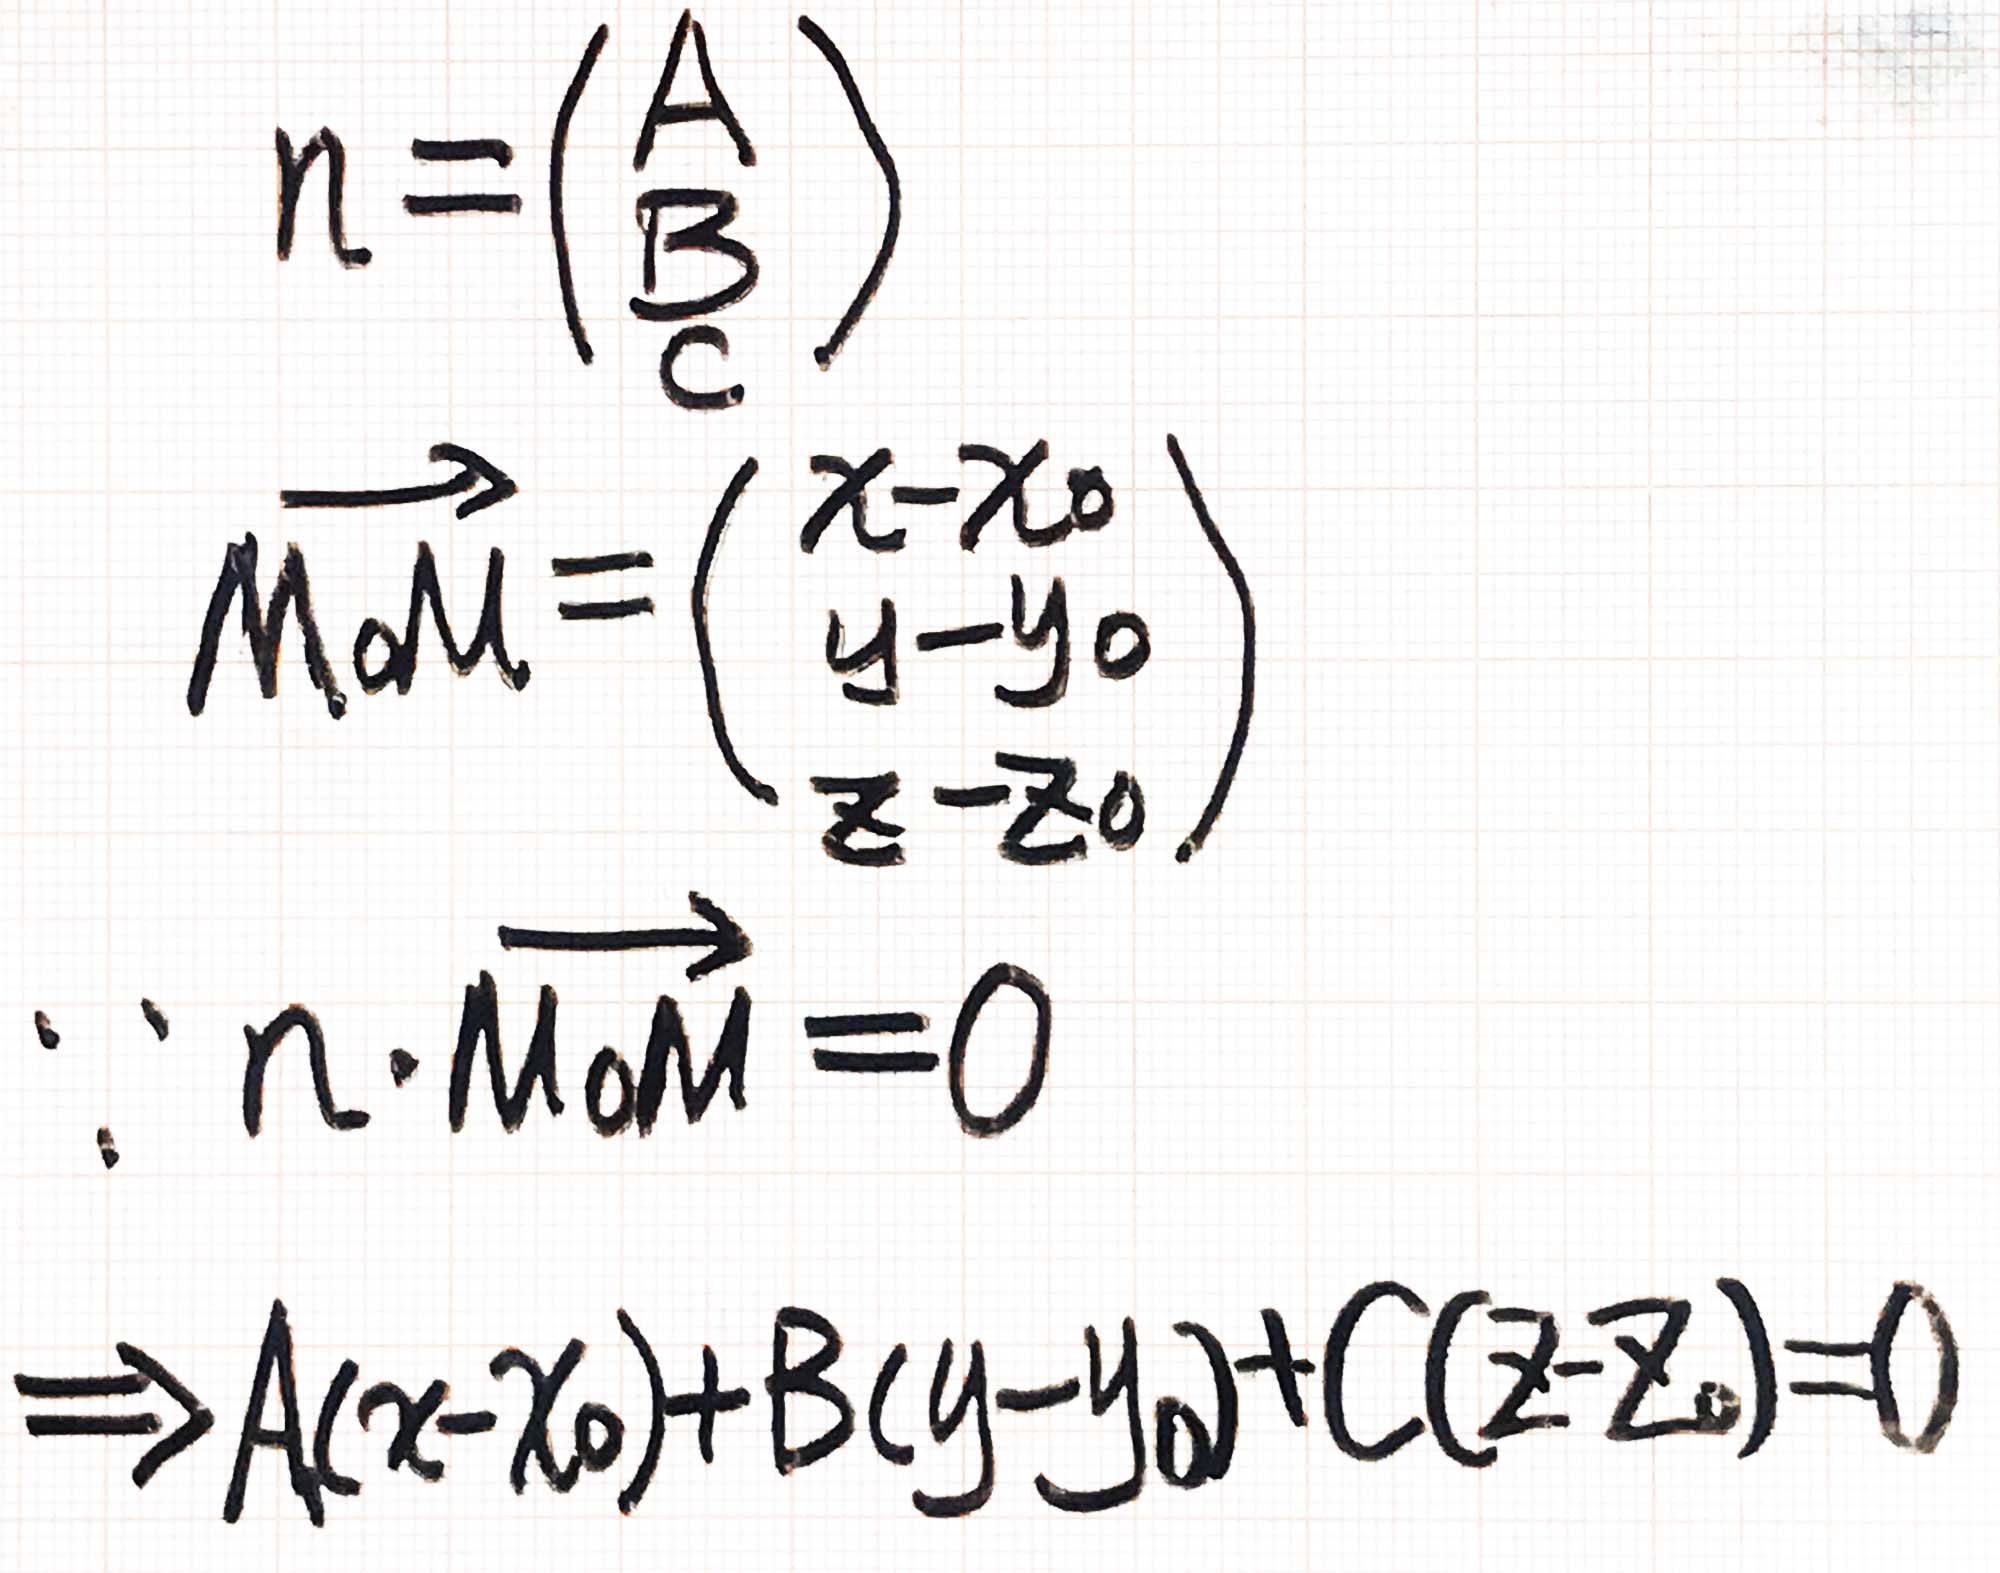 n = ( A
B
C )
→
M₀M = ( x - x₀
y - y₀
z - z₀ )
→
∵ n · M₀M = 0
⇒ A(x - x₀) + B(y - y₀) + C(z - z₀) = 0